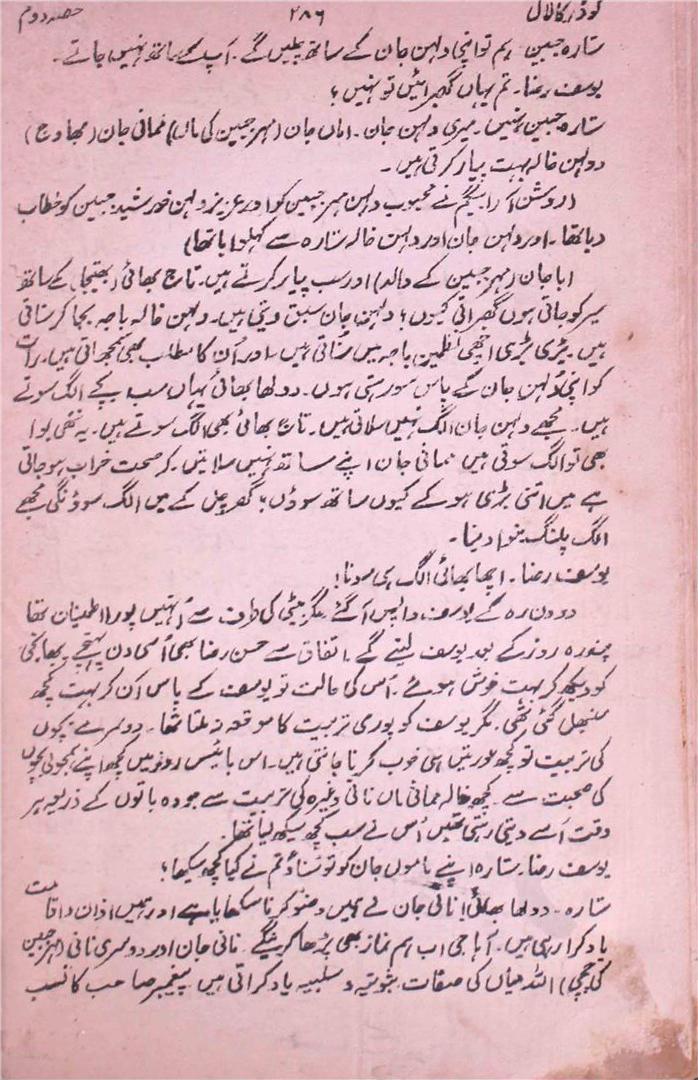 گودڑ کا لال ۲۸۶ حصہ دوم
ستارہ جبین۔ ہم تو اپنی دلہن جان کے ساتھ چلیں گے۔ آپ کے ساتھ نہیں جاتے۔
یوسف رضا۔ تم یہاں گھبرائیں تو نہیں؟
ستارہ جبین۔ نہیں۔ میری دلہن جان۔ اماں جان (مہر جبین کی ماں) ممانی جان (بھاوج)
دولہن خالہ بہت پیار کرتی ہیں۔
(روشن آرا بیگم نے محبوب دلہن مہر جبین کو اور عزیز دلہن خورشید جبین کو خطاب
دیا تھا۔ اور دلہن جان اور دلہن خالہ ستارہ سے کہلوایا تھا)
ابا جان (مہر جبین کے والد) اور سب پیار کرتے ہیں۔ تاج بھائی (بھتیجا) کے ساتھ
سیر کو جاتی ہوں گھبراتی کیوں؟ دلہن جان سبق دیتی ہیں۔ دلہن خالہ باجہ بجا کر سناتی
ہیں۔ بڑی بڑی اچھی نظمیں باجہ میں سناتی ہیں۔ اور اُن کا مطلب بھی سمجھاتی ہیں۔ رات
کو اپنی دُلہن جان کے پاس سو رہتی ہوں۔ دولھا بھائی یہاں سب بچے الگ سوتے
ہیں۔ مجھے دلہن جان الگ نہیں سلاتی ہیں۔ تاج بھائی بھی الگ سوتے ہیں۔ یہ ننھی بوا
بھی تو الگ سوتی ہیں ممانی جان اپنے ساتھ نہیں سلاتیں۔ کہ صحت خراب ہو جاتی
ہے میں اتنی بڑی ہو کے کیوں ساتھ سوؤں؟ گھر چل کے میں الگ سوؤنگی مجھے
الگ پلنگ بنوا دینا۔
یوسف رضا۔ اچھا بھائی الگ ہی سونا!
دو دن رہ کے یوسف واپس آ گئے مگر بیٹی کی طرف سے اُنہیں پورا اطمینان تھا
پندرہ روز کے بعد یوسف لینے گے۔ اتفاق سے حسن رضا بھی اُسی دن پہنچے بھانجی
کو دیکھ کر بہت خوش ہوئے۔ اُس کی حالت تو یوسف کے پاس آن کر بہت کچھ
سنبھل گئی تھی۔ مگر یوسف کو پوری تربیت کا موقعہ نہ ملتا تھا۔ دوسرے بچوں
کی تربیت تو کچھ عورتیں ہی خوب کرنا جانتی ہیں۔ اس بائیس روز میں کچھ اپنے ہمجولی بچوں
کی صحبت سے۔ کچھ خالہ ممانی ماں نانی وغیرہ کی تربیت سے جو وہ باتوں کے ذریعہ ہر
وقت اُسے دیتی رہتی تھیں اُس نے سب کچھ سیکھ لیا تھا۔
یوسف رضا۔ ستارہ اپنے ماموں جان کو تو سناؤ تم نے کیا کچھ سیکھا؟
ستارہ۔ دولھا بھائی! نانی جان نے ہمیں وضو کرنا سکھایا ہے اور ہمیں اذان و اقامت
یاد کرا رہی ہیں۔ آہا جی اب ہم نماز بھی پڑھا کرینگے۔ نانی جان اور دوسری نانی (مہر جبین
کی چچی) اللہ میاں کی صفات ثبوتیہ و سلبیہ یاد کراتی ہیں۔ پیغمبر صاحب کا نسب